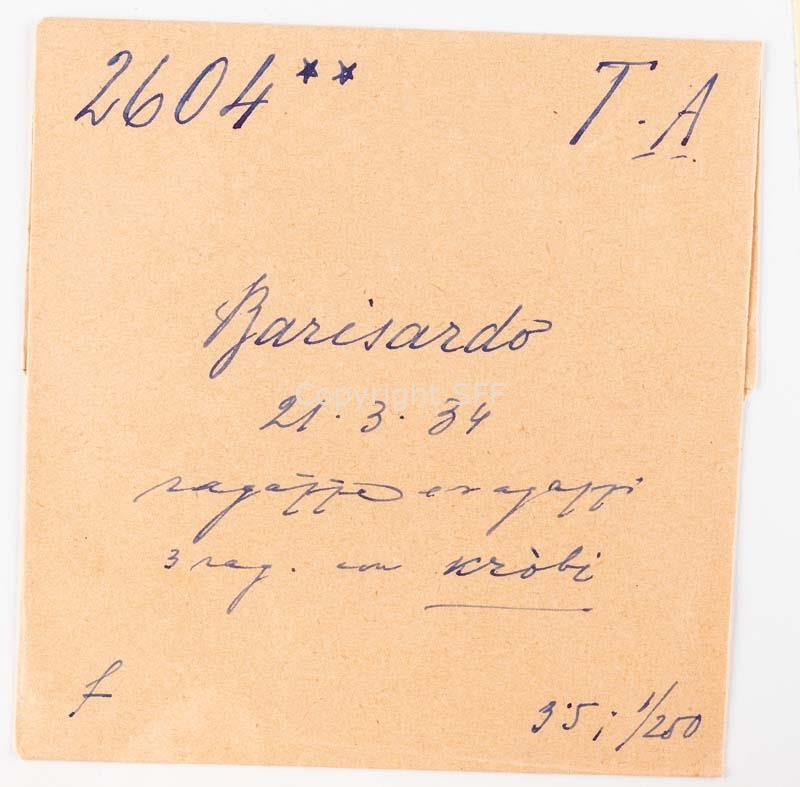 2604** T.A
Barisardo
Copyright SFF
21.3.34
ragazze e ragazzi
3 rag. con kròbi
f
3'5; 1/250